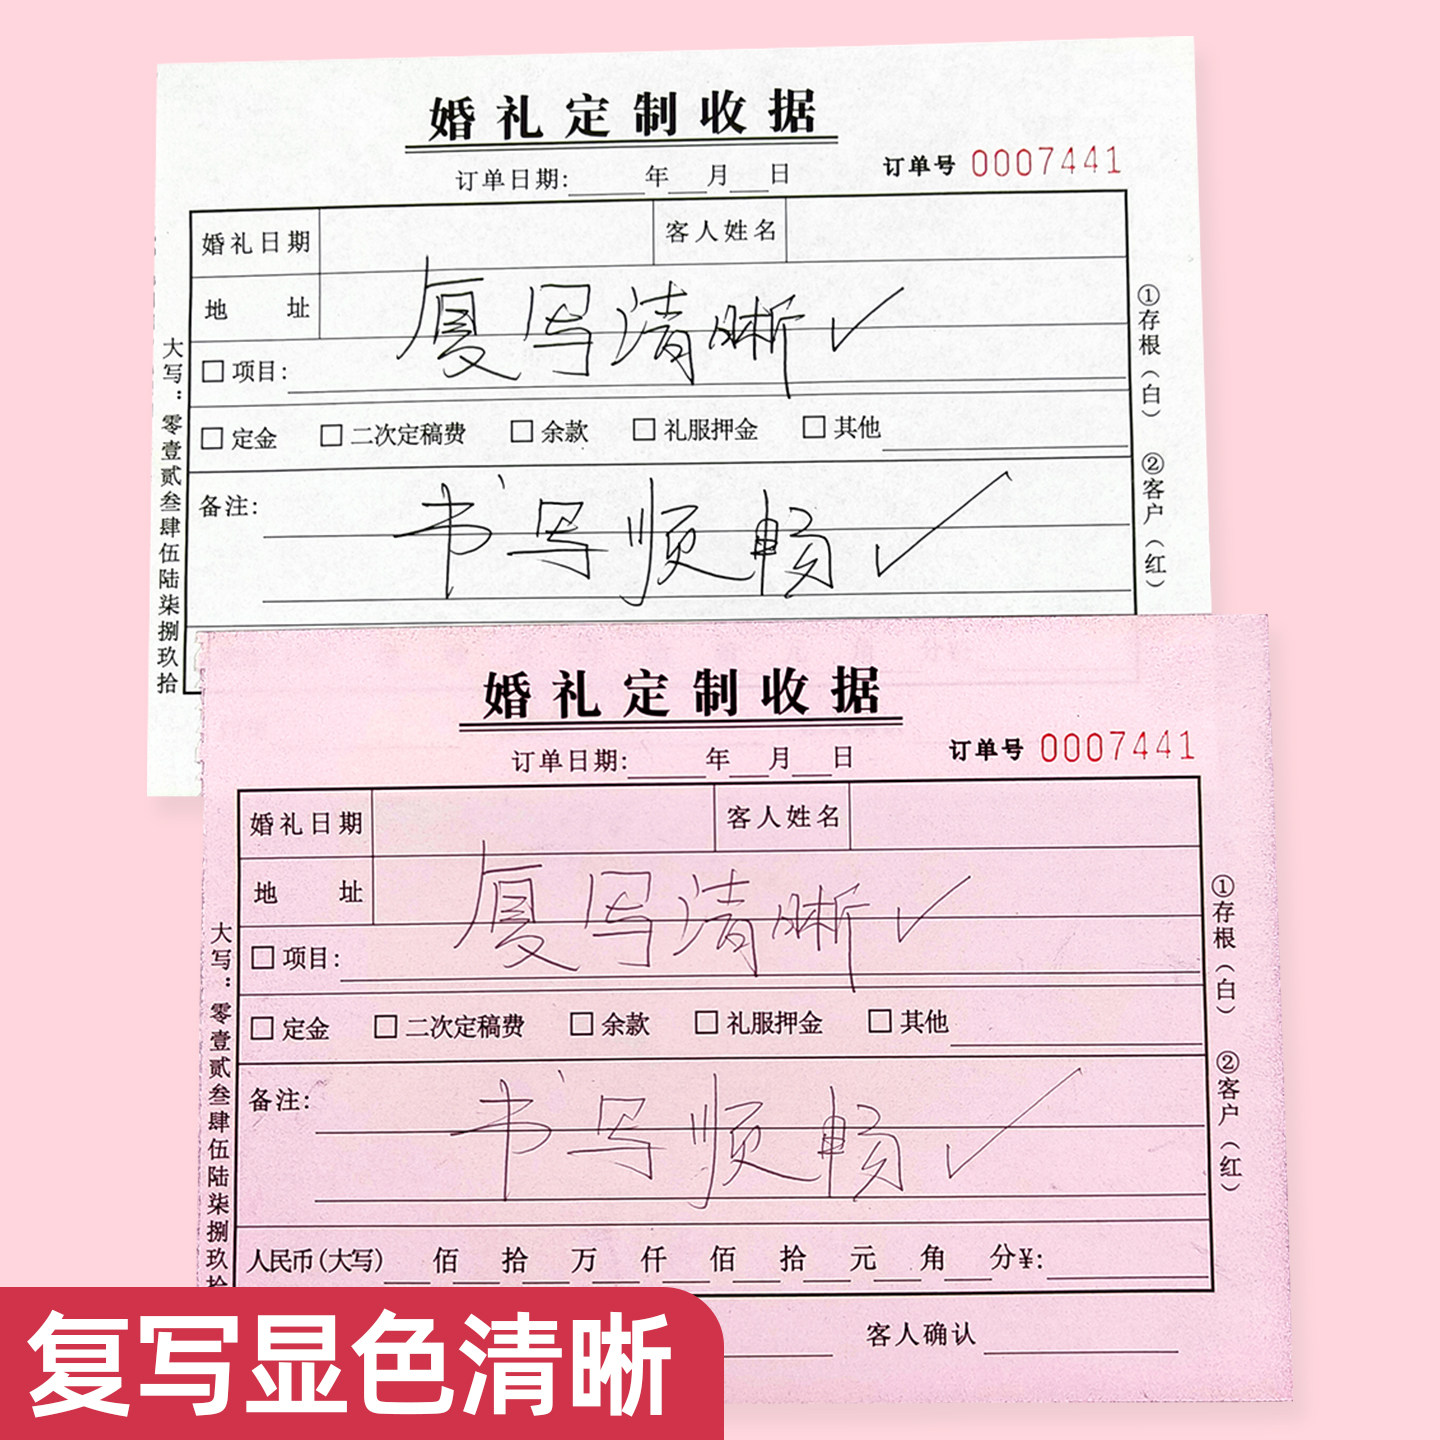 婚礼定制收据
订单日期: 年 月 日 订单号 0007441
婚礼日期 客人姓名
地址
复写清晰✓
□ 项目:
□ 定金 □ 二次定稿费 □ 余款 □ 礼服押金 □ 其他
备注:
书写顺畅✓
大写：零壹贰叁肆伍陆柒捌玖拾
①存根（白） ②客户（红）
婚礼定制收据
订单日期: 年 月 日 订单号 0007441
婚礼日期 客人姓名
地址
复写清晰✓
□ 项目:
□ 定金 □ 二次定稿费 □ 余款 □ 礼服押金 □ 其他
备注:
书写顺畅✓
人民币(大写) 佰 拾 万 仟 佰 拾 元 角 分¥:
大写：零壹贰叁肆伍陆柒捌玖拾
①存根（白） ②客户（红）
客人确认
复写显色清晰